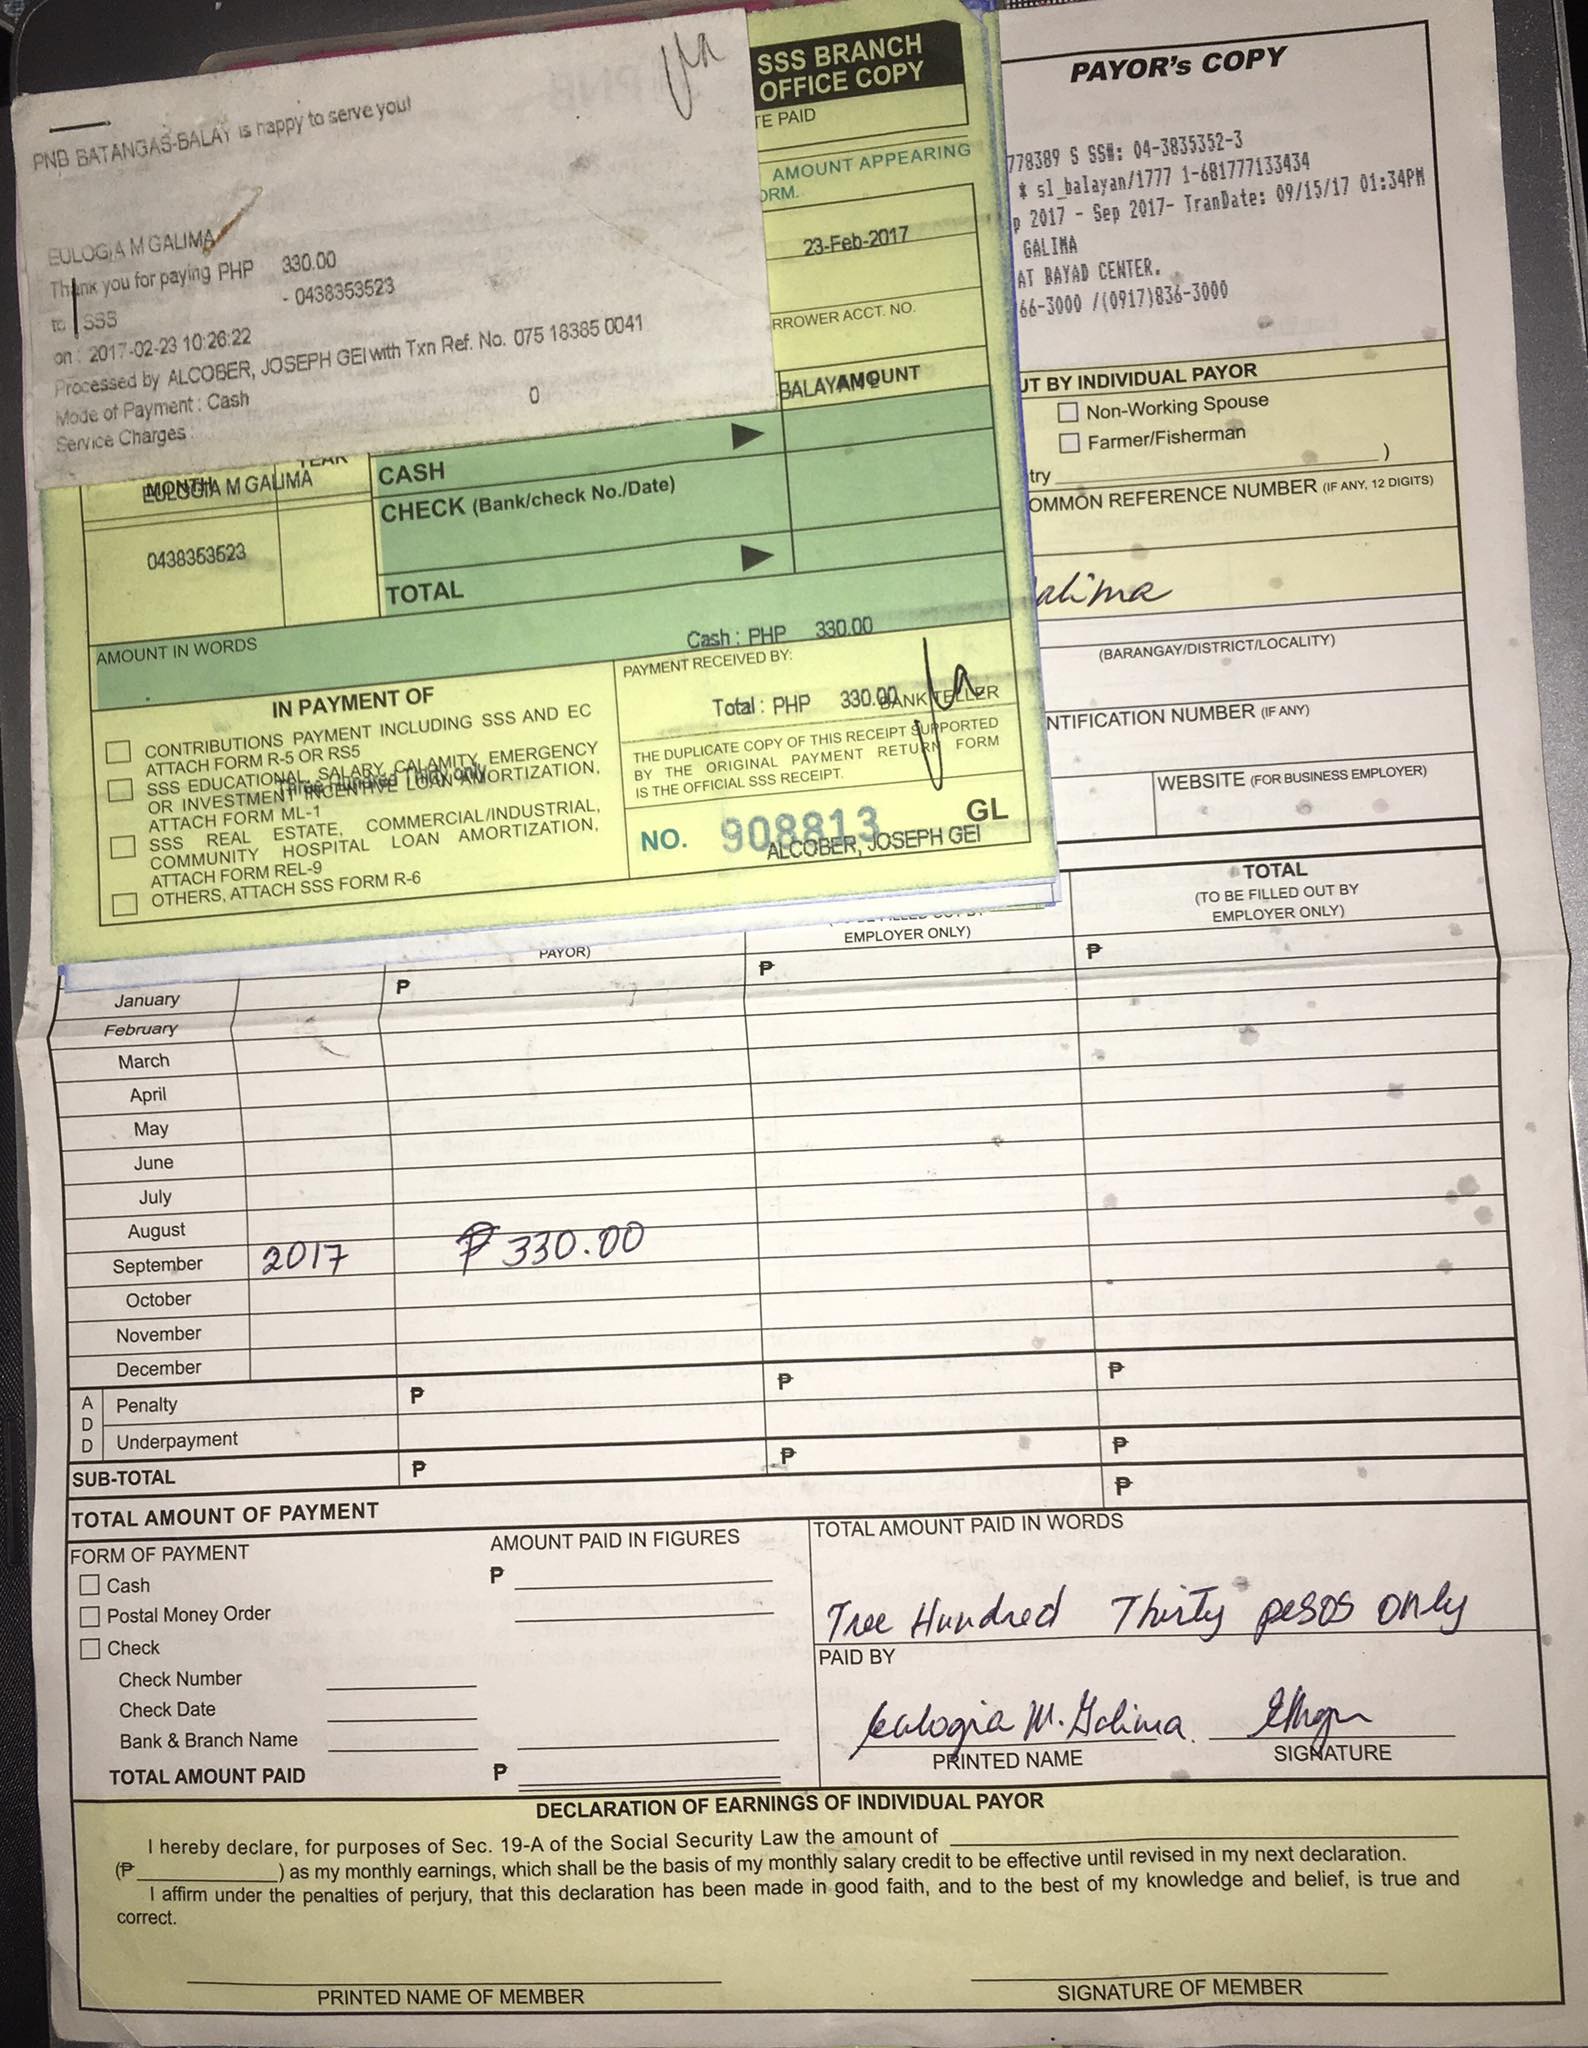 PNB BATANGAS-BALAY is happy to serve you!
EULOGIA M GALIMA
Thank you for paying PHP 330.00
to : SSS - 0438353523
on : 2017-02-23 10:26:22
Processed by ALCOBER, JOSEPH GEI with Txn Ref. No. 075 18385 0041
Mode of Payment : Cash
Service Charges : 0
SSS BRANCH
OFFICE COPY
TE PAID
AMOUNT APPEARING
ORM.
23-Feb-2017
RROWER ACCT. NO.
AMOUNT
MONTH YEAR
EULOGIA M GALIMA
0438353523
CASH
CHECK (Bank/check No./Date)
TOTAL
AMOUNT IN WORDS
Cash : PHP 330.00
IN PAYMENT OF
CONTRIBUTIONS PAYMENT INCLUDING SSS AND EC
ATTACH FORM R-5 OR RS5
SSS EDUCATIONAL, SALARY, CALAMITY, EMERGENCY
OR INVESTMENT INCENTIVE LOAN AMORTIZATION,
ATTACH FORM ML-1
Three Hundred Thirty only
SSS REAL ESTATE, COMMERCIAL/INDUSTRIAL,
COMMUNITY HOSPITAL LOAN AMORTIZATION,
ATTACH FORM REL-9
OTHERS, ATTACH SSS FORM R-6
PAYMENT RECEIVED BY:
Total : PHP 330.00
BANK TELLER
THE DUPLICATE COPY OF THIS RECEIPT SUPPORTED
BY THE ORIGINAL PAYMENT RETURN FORM
IS THE OFFICIAL SSS RECEIPT.
GL
NO. 908813
ALCOBER, JOSEPH GEI
PAYOR's COPY
778389 S SS#: 04-3835352-3
* sl_balayan/1777 1-681777133434
p 2017 - Sep 2017- TranDate: 09/15/17 01:34PM
GALIMA
AT BAYAD CENTER.
66-3000 /(0917)836-3000
UT BY INDIVIDUAL PAYOR
Non-Working Spouse
Farmer/Fisherman
try )
OMMON REFERENCE NUMBER (IF ANY, 12 DIGITS)
alima
(BARANGAY/DISTRICT/LOCALITY)
NTIFICATION NUMBER (IF ANY)
WEBSITE (FOR BUSINESS EMPLOYER)
TOTAL
(TO BE FILLED OUT BY
EMPLOYER ONLY)
EMPLOYER ONLY)
PAYOR)
January ₱ ₱ ₱
February
March
April
May
June
July
August
September 2017 ₱ 330.00
October
November
December
ADD
Penalty ₱ ₱ ₱
Underpayment
SUB-TOTAL ₱ ₱ ₱
TOTAL AMOUNT OF PAYMENT ₱
FORM OF PAYMENT
AMOUNT PAID IN FIGURES
Cash ₱
Postal Money Order
Check
Check Number
Check Date
Bank & Branch Name
TOTAL AMOUNT PAID ₱
TOTAL AMOUNT PAID IN WORDS
Tree Hundred Thirty pesos only
PAID BY
Eulogia M. Galima
PRINTED NAME SIGNATURE
DECLARATION OF EARNINGS OF INDIVIDUAL PAYOR
I hereby declare, for purposes of Sec. 19-A of the Social Security Law the amount of
(₱ ) as my monthly earnings, which shall be the basis of my monthly salary credit to be effective until revised in my next declaration.
I affirm under the penalties of perjury, that this declaration has been made in good faith, and to the best of my knowledge and belief, is true and
correct.
PRINTED NAME OF MEMBER
SIGNATURE OF MEMBER